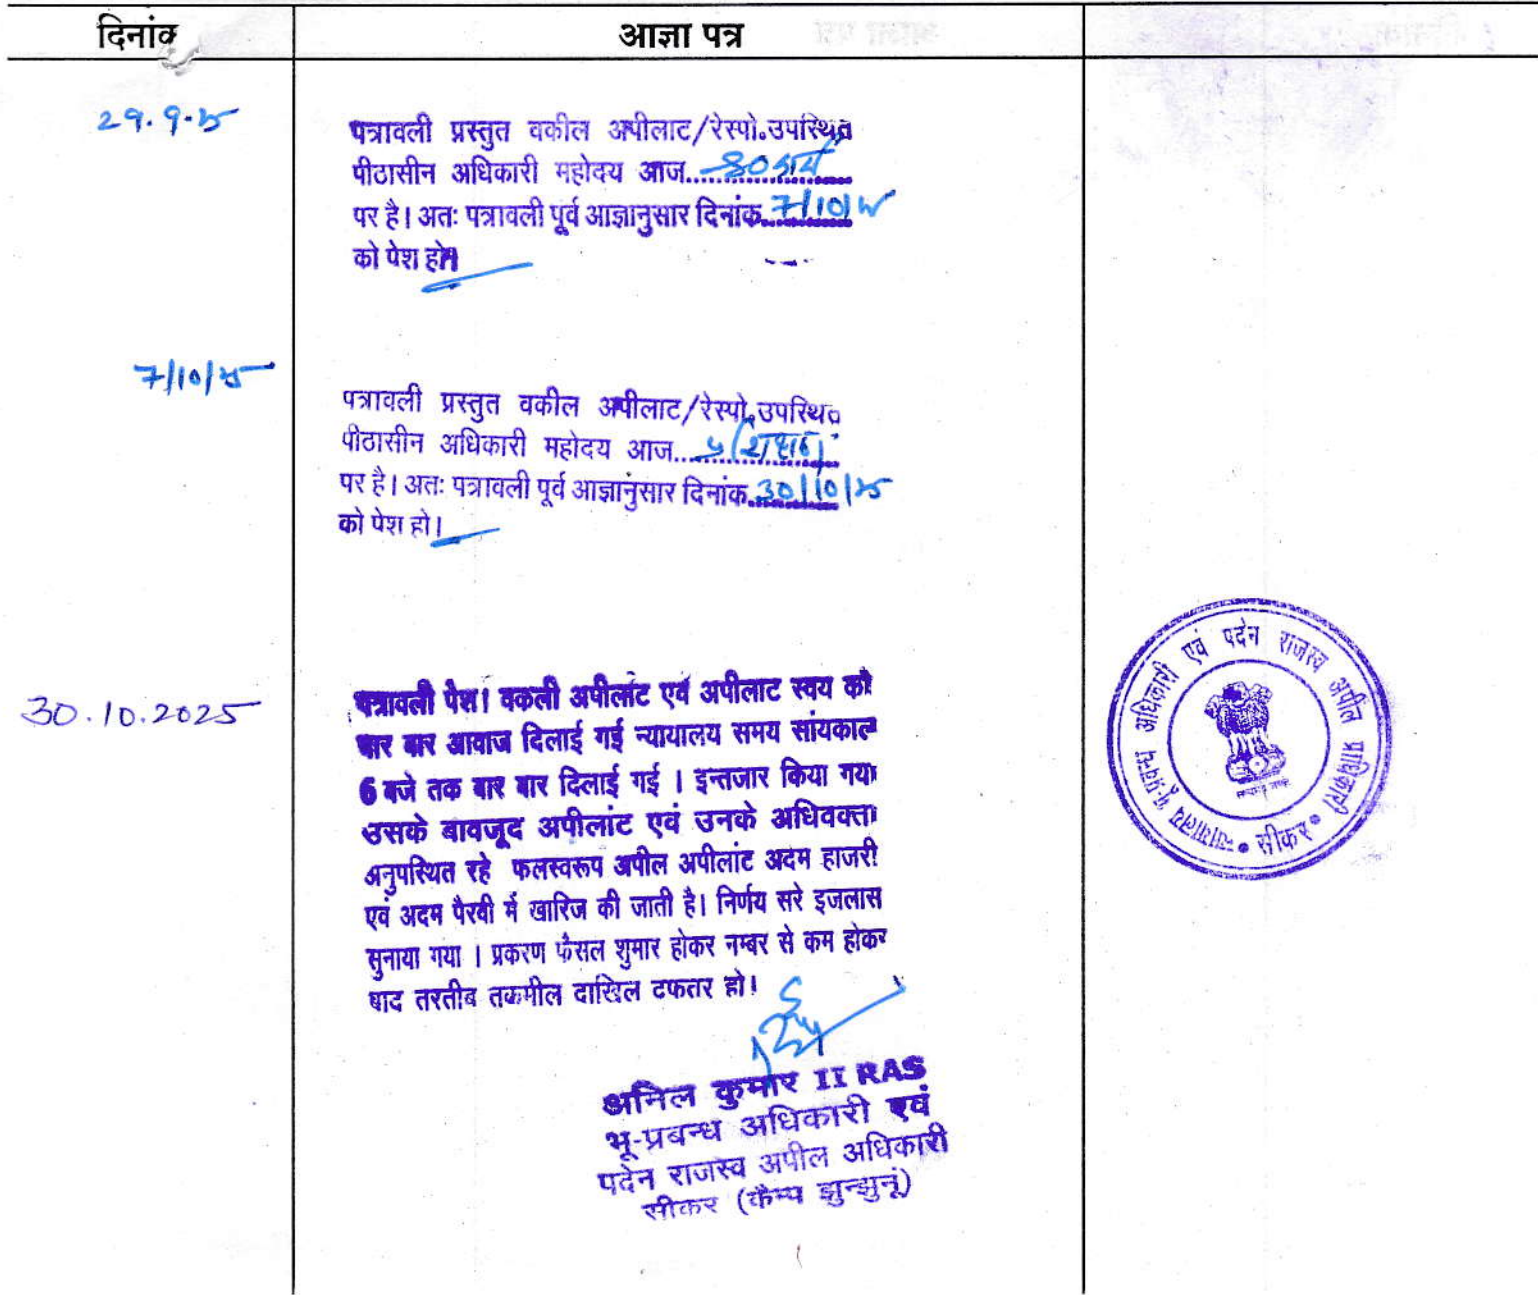 दिनांक
आज्ञा पत्र
29.9.25
पत्रावली प्रस्तुत वकील अपीलाट/रेस्पो.उपस्थित
पीठासीन अधिकारी महोदय आज..............
पर है। अतः पत्रावली पूर्व आज्ञानुसार दिनांक 7/10/25
को पेश हो।
7/10/25
पत्रावली प्रस्तुत वकील अपीलाट/रेस्पो.उपस्थित
पीठासीन अधिकारी महोदय आज..............
पर है। अतः पत्रावली पूर्व आज्ञानुसार दिनांक 30/10/25
को पेश हो।
30.10.2025
पत्रावली पेश। वकली अपीलांट एवं अपीलाट स्वय को
बार बार आवाज दिलाई गई न्यायालय समय सांयकाल
6 बजे तक बार बार दिलाई गई । इन्तजार किया गया
उसके बावजूद अपीलांट एवं उनके अधिवक्ता
अनुपस्थित रहे फलस्वरूप अपील अपीलांट अदम हाजरी
एवं अदम पैरवी में खारिज की जाती है। निर्णय सरे इजलास
सुनाया गया । प्रकरण फैसल शुमार होकर नम्बर से कम होकर
बाद तरतीब तकमील दाखिल दफतर हो।
अनिल कुमार II RAS
भू-प्रबन्ध अधिकारी एवं
पदेन राजस्व अपील अधिकारी
सीकर (कैम्प झुन्झुनूं)
न्यायालय भू-प्रबन्ध अधिकारी एवं पदेन राजस्व अपील प्राधिकारी
सीकर